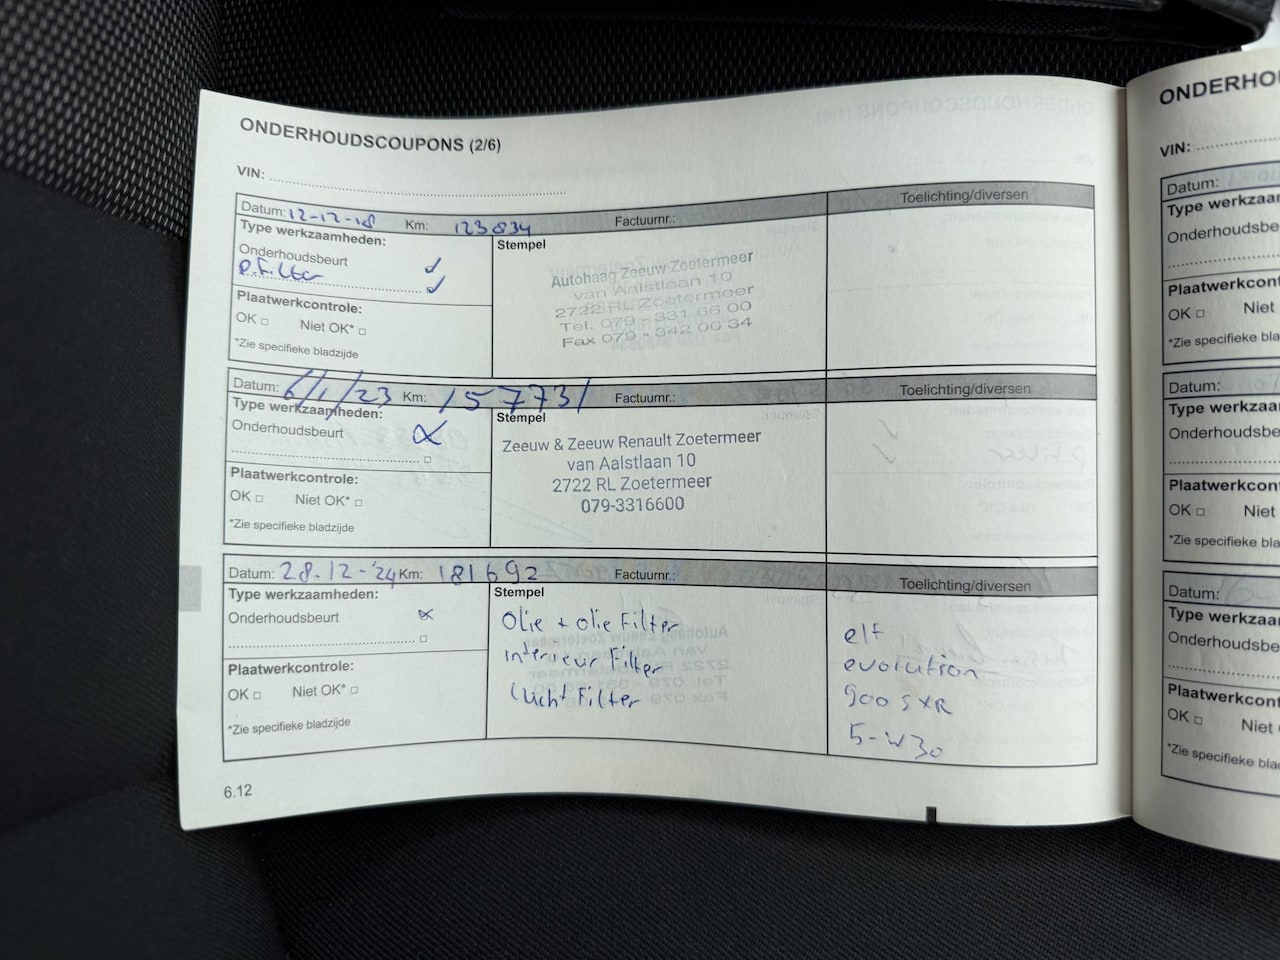 ONDERHOUDSCOUPONS (2/6)
VIN:
Datum: 12-12-18 Km: 123834 Factuurnr.: Toelichting/diversen
Type werkzaamheden:
Onderhoudsbeurt
P. Filter
Plaatwerkcontrole:
OK Niet OK*
*Zie specifieke bladzijde
Stempel
Autohaag Zeeuw Zoetermeer
van Aalstlaan 10
2722 RL Zoetermeer
Tel. 079 - 331 66 00
Fax 079 - 342 06 34
Datum: 6/1/23 Km: 157731 Factuurnr.: Toelichting/diversen
Type werkzaamheden:
Onderhoudsbeurt
Plaatwerkcontrole:
OK Niet OK*
*Zie specifieke bladzijde
Stempel
Zeeuw & Zeeuw Renault Zoetermeer
van Aalstlaan 10
2722 RL Zoetermeer
079-3316600
Datum: 28-12-'24 Km: 181692 Factuurnr.: Toelichting/diversen
Type werkzaamheden:
Onderhoudsbeurt
Plaatwerkcontrole:
OK Niet OK*
*Zie specifieke bladzijde
Stempel
Olie + olie Filter
interieur Filter
lucht Filter
elf
evolution
900 SXR
5-W30
6.12
ONDERHOU
VIN:
Datum:
Type werkzaa
Onderhoudsbe
Plaatwerkcont
OK Niet
*Zie specifieke bla
Datum:
Type werkzaa
Onderhoudsbe
Plaatwerkcon
OK Niet
*Zie specifieke bla
Datum:
Type werkzaa
Onderhoudsbe
Plaatwerkcon
OK Niet
*Zie specifieke blad